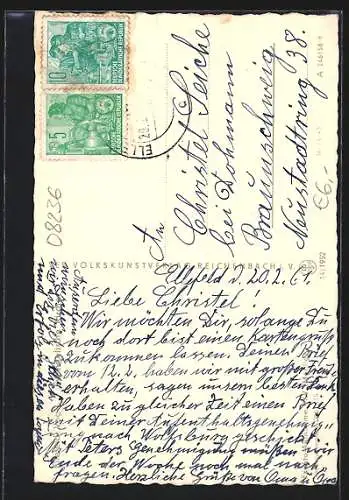 10
DEUTSCHE
DEMOKRATISCHE REPUBLIK
5
08236
An
Christel Seiche
bei Dohmann
Braunschweig
Neustadtring 38.
€6,-
A 1461 58
VOLKSKUNSTVERLAG REICHENBACH i. V.
14/1992
Ellfeld d. 20.2.61
Liebe Christel!
Wir möchten Dir, solange Du
noch dort bist einen Kartengruß
zukommen lassen. Deinen Brief
vom 12.2. haben wir mit großer Freude
erhalten, sagen unsern besten Dank
Haben zu gleicher Zeit einen Brief
mit Deiner Aufenthaltsgenehmigung
nach Wolfsburg geschickt.
Mit Peters Genehmigung müßen wir
Ende der Woche noch mal nach
fragen. Herzliche Grüße von Oma u. Opa